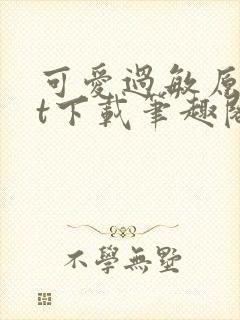 可愛過敏原
t下載筆趣閣
不學無墅